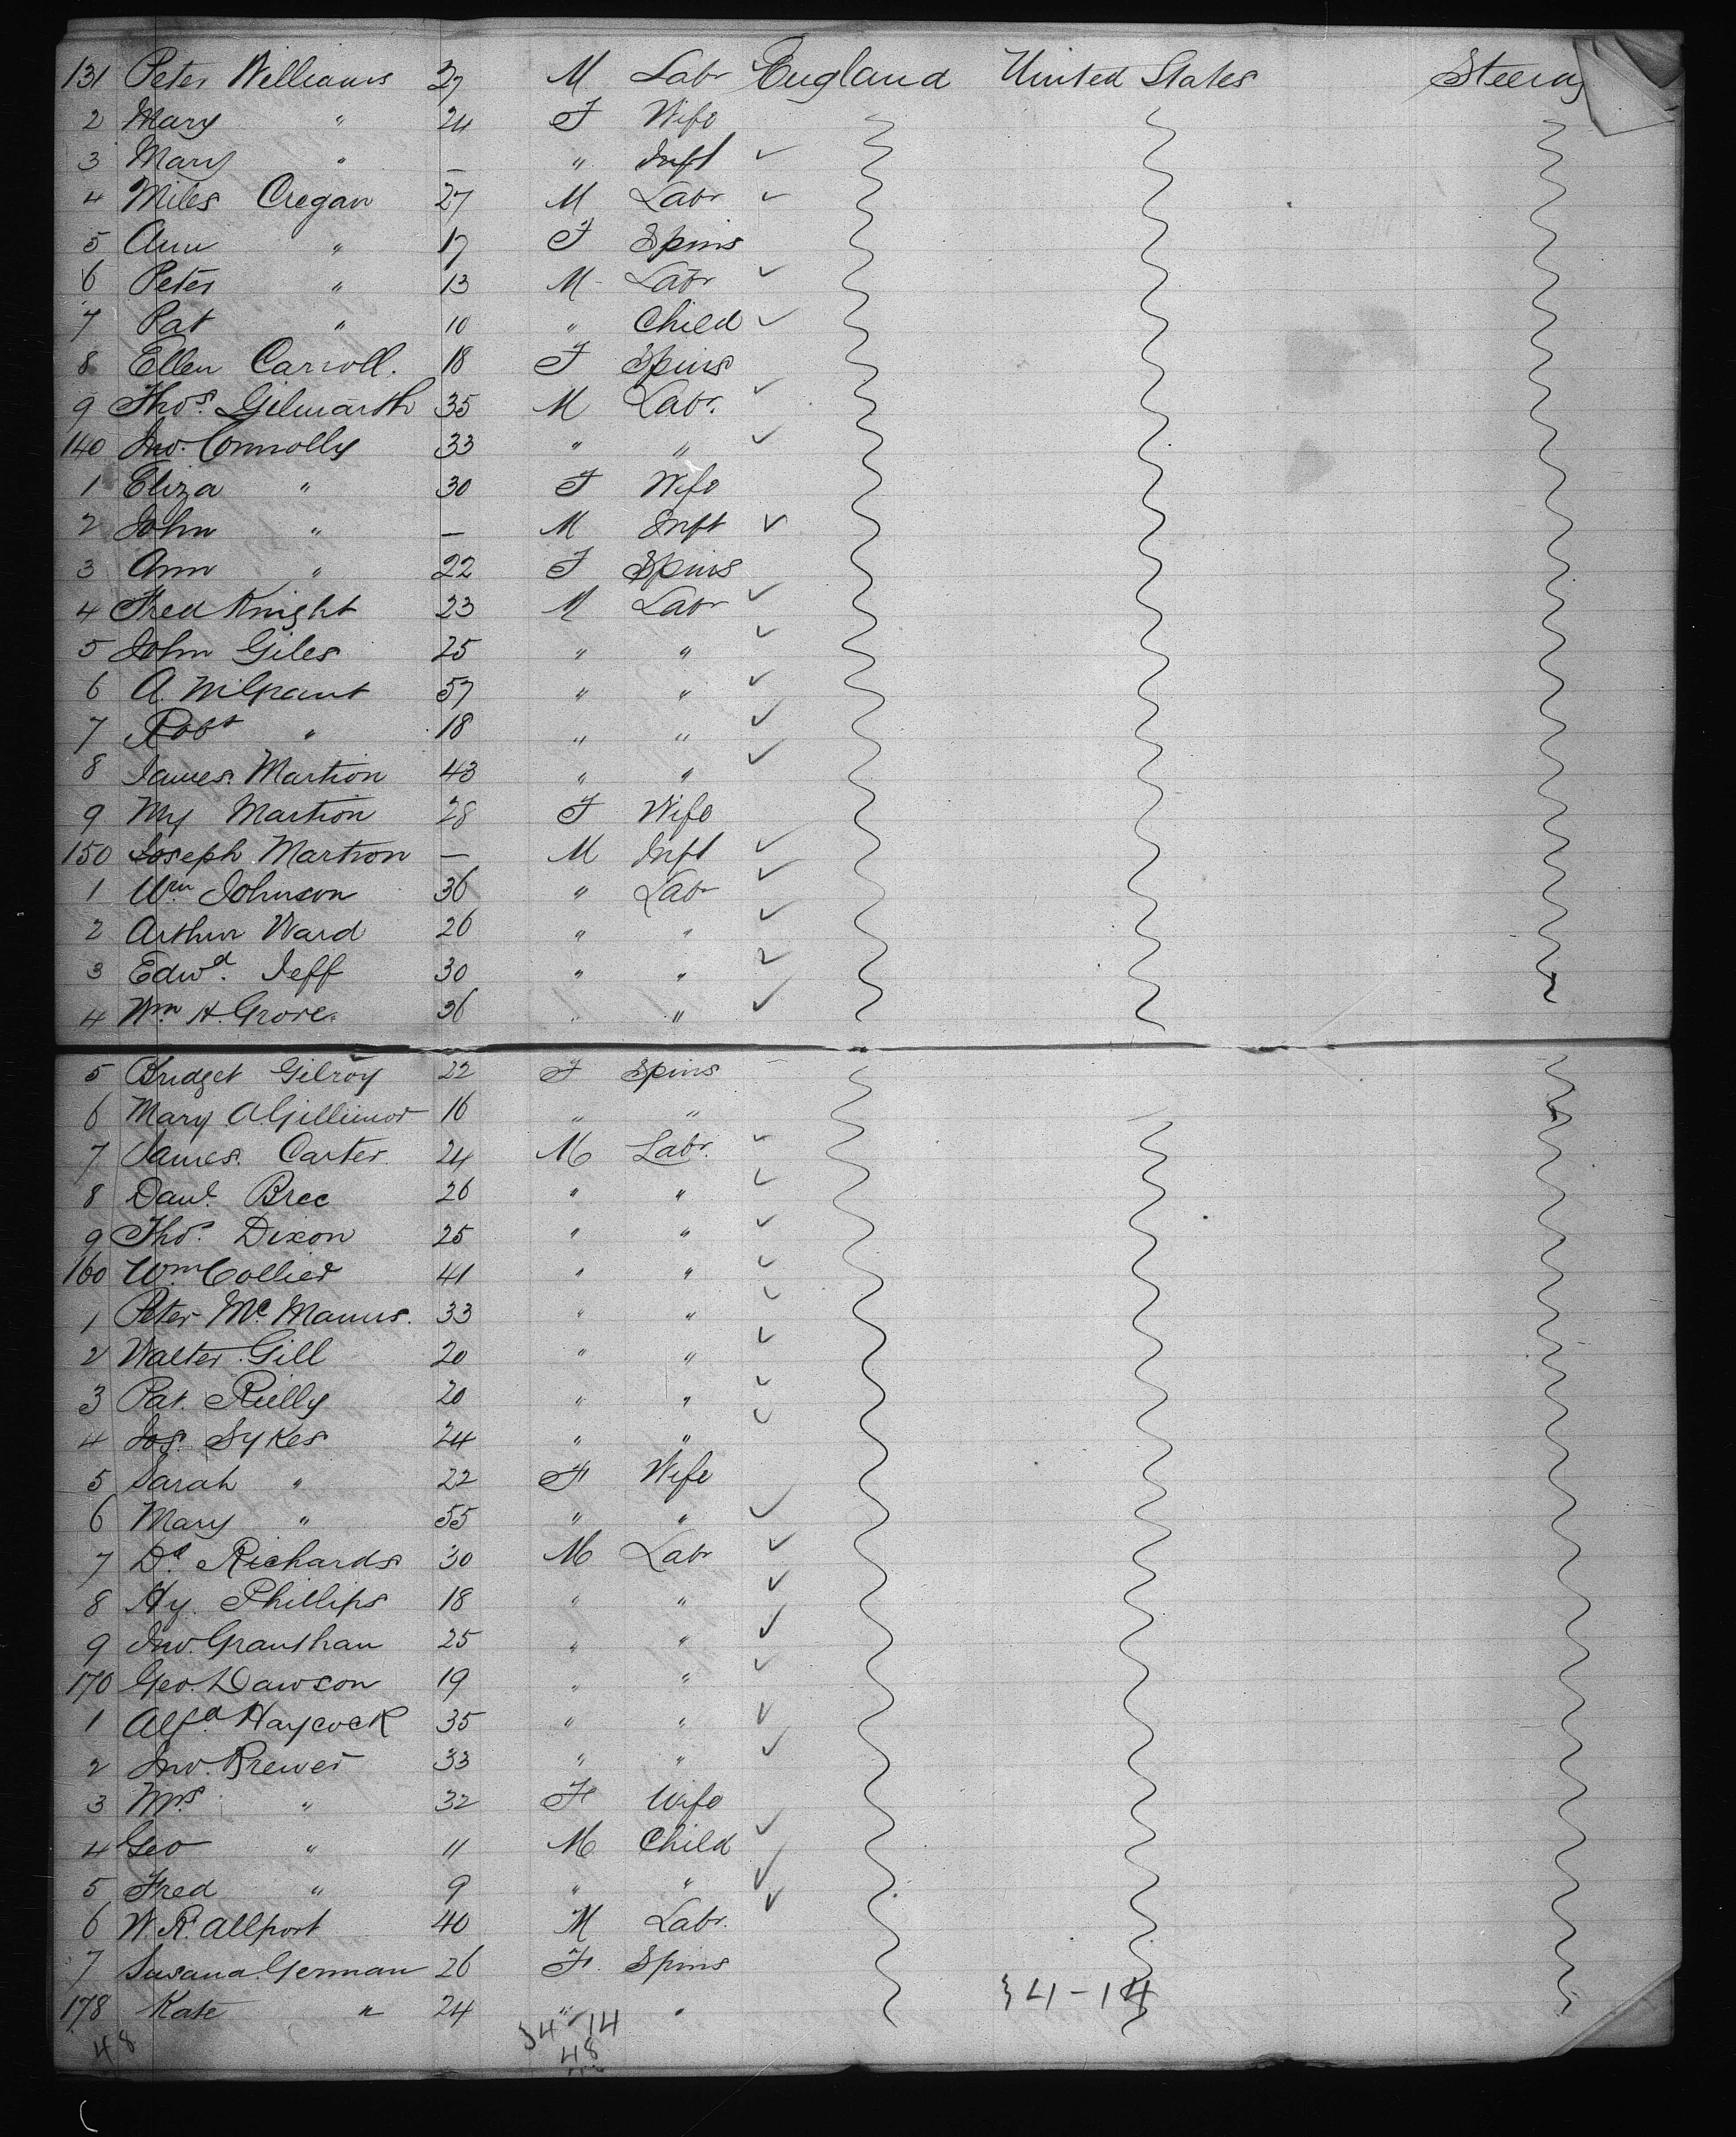 131 Peter Williams 37 M Labr England United States Steerag
2 Mary " 24 F Wife
3 Mary " — " Inft
4 Miles Cregan 27 M Labr
5 Ann " 17 F Spins
6 Peter " 13 M Labr
7 Pat " 10 " Child
8 Ellen Carroll. 18 F Spins
9 Thos. Gilmarth 35 M Labr.
140 Jno. Connolly 33 " "
1 Eliza " 30 F Wife
2 John " — M Inft
3 Ann " 22 F Spins
4 Fred Knight 23 M Labr
5 John Giles 25 " "
6 A. 57 " "
7 Robt " 18 " "
8 James Martion 43 " "
9 My Martion 28 F Wife
150 Joseph Martion — M Inft
1 Wm Johnson 36 " Labr
2 Arthur Ward 26 " "
3 Edwd. Jeff 30 " "
4 Wm H. Grove 36 " "
5 Bridget Gilroy 22 F Spins
6 Mary A Gillimor 16 " "
7 James Carter 24 M Labr.
8 Danl. Bree 26 " "
9 Thos. Dixon 25 " "
160 Wm Collier 41 " "
1 Peter Mc Manus. 33 " "
2 Walter Gill 20 " "
3 Pat. Reilly 20 " "
4 Jos. Sykes 24 " "
5 Sarah " 22 F Wife
6 Mary " 55 " "
7 Dd Richards 30 M Labr
8 Hy. Phillips 18 " "
9 Jno. Granthan 25 " "
170 Geo. Dawson 19 " "
1 Alfd Haycock 35 " "
2 Jno. Brewer 33 " "
3 Mrs " 32 F Wife
4 Geo " 11 M Child
5 Fred " 9 " "
6 W. R. Allport 40 M Labr.
7 Susana German 26 F. Spins
178 Kate " 24 " "
34-14
34-14
48
48